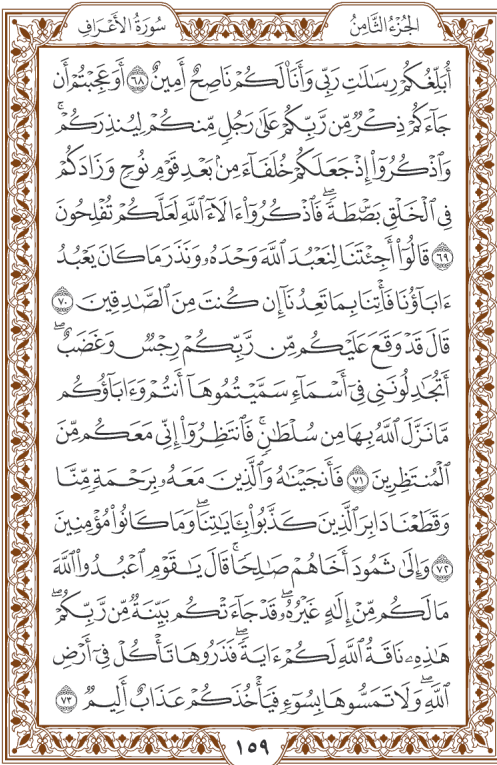 سُورَةُ الأَعْرَافِ
الجُزْءُ الثَّامِنُ
أُبَلِّغُكُمْ رِسَٰلَٰتِ رَبِّى وَأَنَا۠ لَكُمْ نَاصِحٌ أَمِينٌ ٦٨ أَوَعَجِبْتُمْ أَن
جَآءَكُمْ ذِكْرٌ مِّن رَّبِّكُمْ عَلَىٰ رَجُلٍ مِّنكُمْ لِيُنذِرَكُمْ ۚ
وَٱذْكُرُوٓا۟ إِذْ جَعَلَكُمْ خُلَفَآءَ مِنۢ بَعْدِ قَوْمِ نُوحٍ وَزَادَكُمْ
فِى ٱلْخَلْقِ بَصْۜطَةً ۖ فَٱذْكُرُوٓا۟ ءَالَآءَ ٱللَّهِ لَعَلَّكُمْ تُفْلِحُونَ
٦٩ قَالُوٓا۟ أَجِئْتَنَا لِنَعْبُدَ ٱللَّهَ وَحْدَهُۥ وَنَذَرَ مَا كَانَ يَعْبُدُ
ءَابَآؤُنَا فَأْتِنَا بِمَا تَعِدُنَآ إِن كُنتَ مِنَ ٱلصَّٰدِقِينَ ٧٠
قَالَ قَدْ وَقَعَ عَلَيْكُم مِّن رَّبِّكُمْ رِجْسٌ وَغَضَبٌ ۖ
أَتُجَٰدِلُونَنِى فِىٓ أَسْمَآءٍ سَمَّيْتُمُوهَآ أَنتُمْ وَءَابَآؤُكُم
مَّا نَزَّلَ ٱللَّهُ بِهَا مِن سُلْطَٰنٍ ۚ فَٱنتَظِرُوٓا۟ إِنِّى مَعَكُم مِّنَ
ٱلْمُنتَظِرِينَ ٧١ فَأَنجَيْنَٰهُ وَٱلَّذِينَ مَعَهُۥ بِرَحْمَةٍ مِّنَّا
وَقَطَعْنَا دَابِرَ ٱلَّذِينَ كَذَّبُوا۟ بِـَٔايَٰتِنَا ۖ وَمَا كَانُوا۟ مُؤْمِنِينَ
٧٢ وَإِلَىٰ ثَمُودَ أَخَاهُمْ صَٰلِحًا ۗ قَالَ يَٰقَوْمِ ٱعْبُدُوا۟ ٱللَّهَ
مَا لَكُم مِّنْ إِلَٰهٍ غَيْرُهُۥ ۖ قَدْ جَآءَتْكُم بَيِّنَةٌ مِّن رَّبِّكُمْ ۖ
هَٰذِهِۦ نَاقَةُ ٱللَّهِ لَكُمْ ءَايَةً ۖ فَذَرُوهَا تَأْكُلْ فِىٓ أَرْضِ
ٱللَّهِ ۖ وَلَا تَمَسُّوهَا بِسُوٓءٍ فَيَأْخُذَكُمْ عَذَابٌ أَلِيمٌ ٧٣
١٥٩